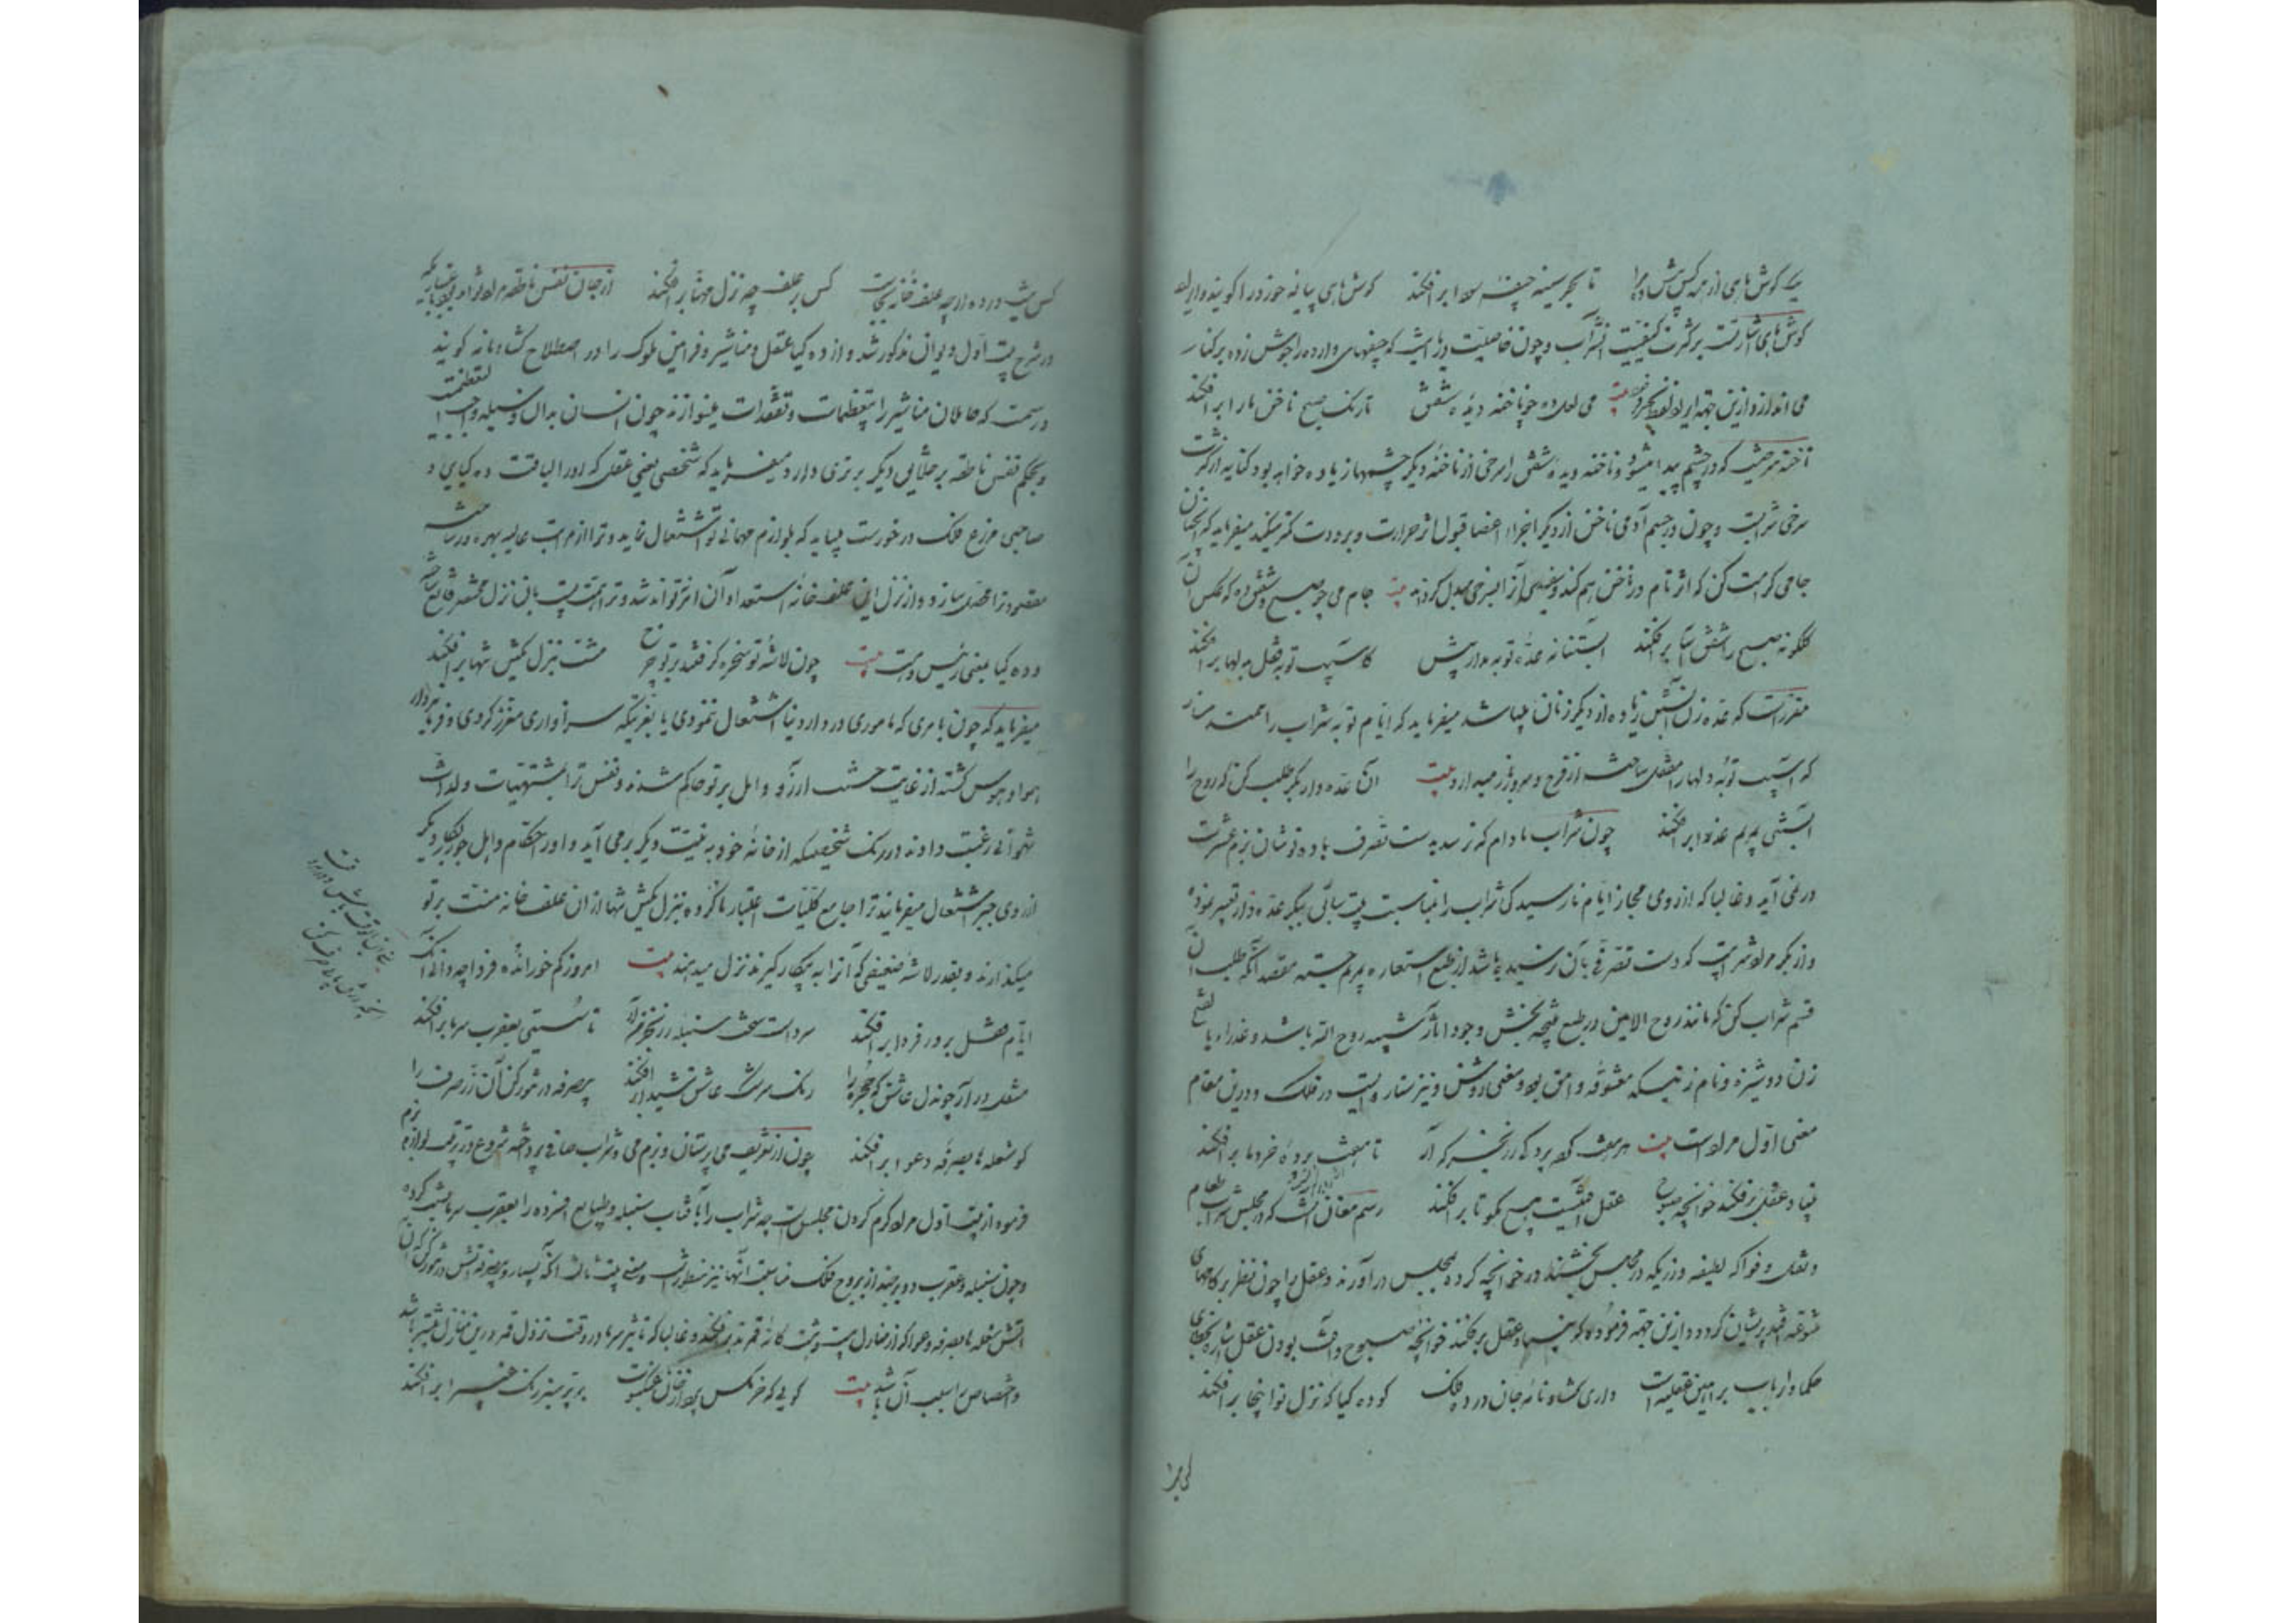 یک گوش ماهی از همه کس بیش ده مرا تا بحر سینه جیفه سودا برافکند گوش ماهی پیاله خورد را گویند و ایراد
گوش ماهی اشارتست بر کثرت کیفیت شراب و چون خاصیت دریا است که جیفهای وارده را جوش زده بر کنار
می اندازد ازین جهة ایراد لفظ بحر نموده بیت می لعل ده چو ناخنه دیده شفق تا رنگ صبح ناخن ما را برافکند
ناخنه مرضیست که در چشم پیدا میشود و ناخنه دیده شفق را سرخی از ناخنه دیگر چشمها زیاده خواهد بود کنایه از کثرت
سرخی شرابست و چون در جسم آدمی ناخن از دیگر اجزاء اعضا قبول اثر حرارت و برودت کمتر میکند میفرماید که آنچنان
جامی کرامت کن که اثر تام در ناخن هم کند و سفیدی آنرا بسرخی مبدل گرداند بیت جام می چو صبح و شفق ده که عکس آن
گلگونه صبح را شفق آسا برافکند آبستنانه عده توبه مدار پیش کاسیب توبه قفل بدلها برافکند
مقررست که عده زن آبستن زیاده از دیگر زنان میباشد میفرماید که ایام توبه شراب را ممتد مساز
که آسیب توبه دلها را مقفل ساخته از فرح و سرور باز میدارد بیت آن عده دار بکر طلب کن که روح را
آبستنی بمریم عذرا برافکند چون شراب مادام که نرسد بدست تصرف باده نوشان بزم عشرت
در نمی آید و غالبا که از روی مجاز ایام نارسیدگی شراب را بمناسبت بیت سابق ببکر عده دار تعبیر نموده
و از بکر مراد شرابیست که دست تصرفی بآن نرسیده باشد از طبع استعاره بمریم جسته مقصد آنکه طلب آن
قسم شراب کن که مانند روح الامین در طبع نتیجه بخش وجود آثار شبیه روح الله باشد و عذراء بالفتح
زن دوشیزه و نام زنیست که معشوقه وامق بود و بمعنی روشن و نیز ستاره ایست در فلک و درین مقام
معنی اول مرادست بیت هر هفت کرده پردگی رز بخرگه آر تا هفت پرده خرد ما برافکند
بنیاد عقل برفکند خوانچه صبوح عقل آفتست هیچ مگو تا برافکند رسم مغان آنست که در مجلس شراب طعام
و نقل و فواکه لطیفه و زریکه در مجلس بخشند در خوانچه کرده بمجلس در آورند و عقل را چون نظر بر کامهای
متوعه افتد پریشان گردد و ازین جهة فرموده که بنیاد عقل برفکند خوانچه صبوح و آفت بودن عقل اشاره بخطای
حکما و ارباب براهین عقلیه است داری گشادنامه جان در ده فلک گو ده کیا که نزل تو اینجا برافکند
کس را
کس نیست در ده ار چه علف خانه بجاست کس بر علف چه نزل مهنا برافکند از جان نفس ناطقه مراد است
در شرح بیت اول دیوان مذکور شد و از ده کیا عقل و مناشیر و فرامین ملوک را در اصطلاح گشادنامه گویند
و رسمت که حاملان مناشیر را بتعظیمات و تفقدات مینوازند چون انسان بدان وسیله واجب التعظیمست
و بحکم نفس ناطقه بر خلایق دیگر برتری دارد میفرماید که شخصی یعنی عقل که او را لیاقت ده کیایی و
صاحبی مزرع فلک در خورست میباید که بلوازم مهمانی تو اشتغال نماید و ترا از مراتب عالیه بهره ور ساخته
مقصود ترا محصل سازد و از نزل این علف خانه استعداد آن اثر نتواند شد و ترا همت بآن نزل محقر قانع ساخته
و ده کیا بمعنی رئیس دهست بیت چون لاشه تو سخره گرفتند بر تو چرخ منت بنزل یکش تنها برافکند
میفرماید که چون بامری که ماموری در دار دنیا اشتغال ننمودی یا بغیر آنکه سزاواری مغرز کردی و فرمانبردار
هوا و هوس گشته از غایت خست آرزو و امل بر تو حاکم شدند و نفس ترا بمشتهیات و لذات
شهوانی رغبت دادند در رنگ شخصیکه از خانه خود به نیت دیگر برمی آید و او را حکام و اهل جور بکار دیگر
از روی جبر اشتغال میفرمایند ترا جامع کلیات اعتبار ناکرده بنزل یکش تنها از آن علف خانه منت بر تو
میگذارند و بقدر لاشه ضعیفی که آنرا به بیکار گیرند نزل میدهند بیت امروز کم خور انده فردا چه دانی آنک
ایام قفل بر در فردا برافکند سردست سخت سنبله رز بخرمن آر تا سستی بعقرب سرما برافکند
مشعل در آر چون دل عاشق که حجره را رنگ سرشک عاشق شیدا برافکند بیصرفه در تنور کن آن زر صرف را
کو شعله ها بصرفه و عوا برافکند چون از تعریف می پرستان و بزم می و شراب صافی پرداخته شروع در ترتیب لوازم بزم
فرموده از بیت اول مراد گرم کردن مجلس است چه شراب را بآفتاب سنبله و طبایع افسرده را بعقرب سرما نسبت کرده
و چون سنبله و عقرب دو برجند از بروج فلک مناسبت آنها نیز منظور است و معنی بیت ثالث آنکه بسیار و بیصرفه آتش در تنور کن که آن
آتش شعله ها بصرفه و عوا که از منازل بیست و هشت گانه قمرند برافکند و غالبا که تاثیر سرما در وقت نزول قمر درین منازل بیشتر باشد
و اختصاص بسبب آن باشد بیت گویی که خرمگس پرد از خان عنکبوت بر پر سبز رنگ غبیرا برافکند